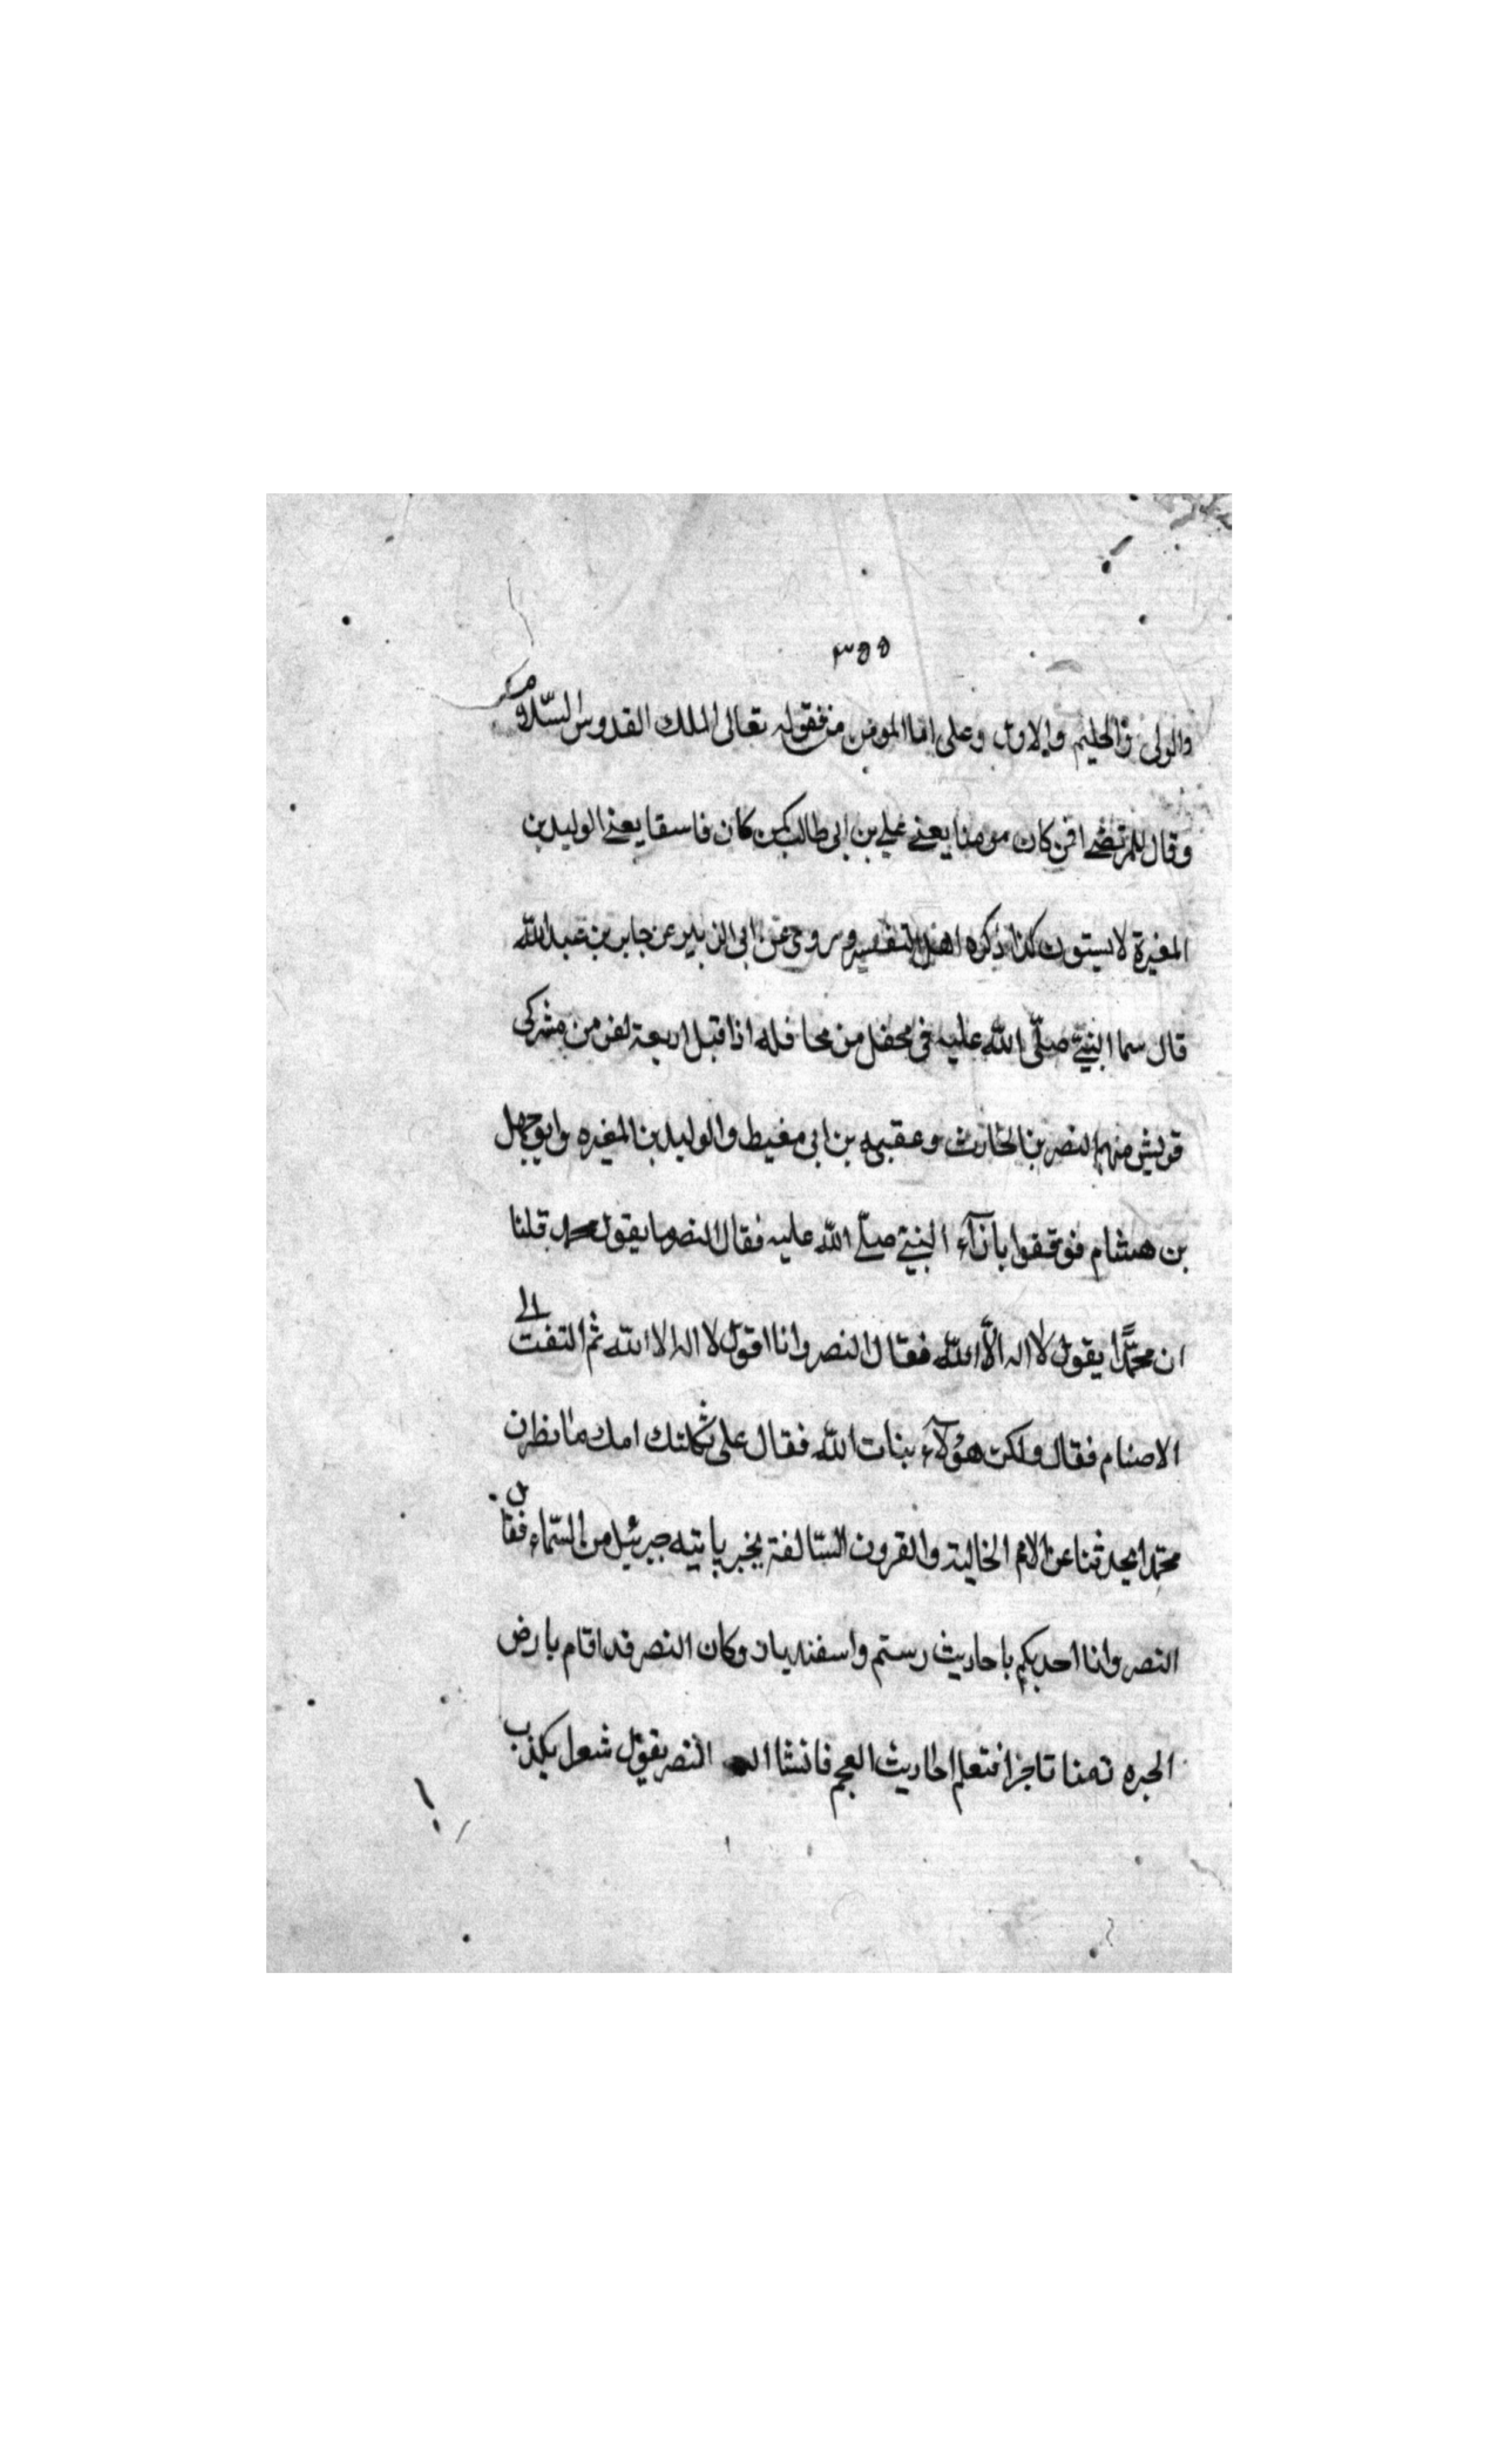 ٣٥٥
والولى والحليم والاول وعلى اما المومن منه فقوله تعالى الملك القدوس السّلام
وقال للمرتضى افمن كان مومنا يعنى على بن ابى طالب كمن كان فاسقا يعنى الوليد بن
المغيرة لا يستون كذا ذكره اهل التفسير وروى عن ابى الزبير عن جابر بن عبد اللّه
قال بينما النبىّ صلّى اللّه عليه فى محفل من محافله اذا قبل اربعة نفر من مشركى
قريش منهم النصر بن الحارث وعقبه بن ابى مغيط والوليد بن المغيره وابو جهل
بن هشام فوقفوا بازآء النبىّ صلّى اللّه عليه فقال النصر ما يقول محمد قلنا
ان محمّدًا يقول لا اله الّا اللّه فقال النصر وانا اقول لا اله الا اللّه ثم التفت الى
الاصنام فقال ولكن هؤلآء بنات اللّه فقال على ثكلتك امك ما ان
محمّدا يحدثنا عن الامم الخالية والقرون السّالفة بخبر ياتيه جبرئيل من السّماء فقال
النصر وانا احدثكم باحاديث رستم واسفنديار وكان النصر قد اقام بارض
الحيره تاجرا فتعلم احاديث العجم فانشا النصر يقول شعر يكذب